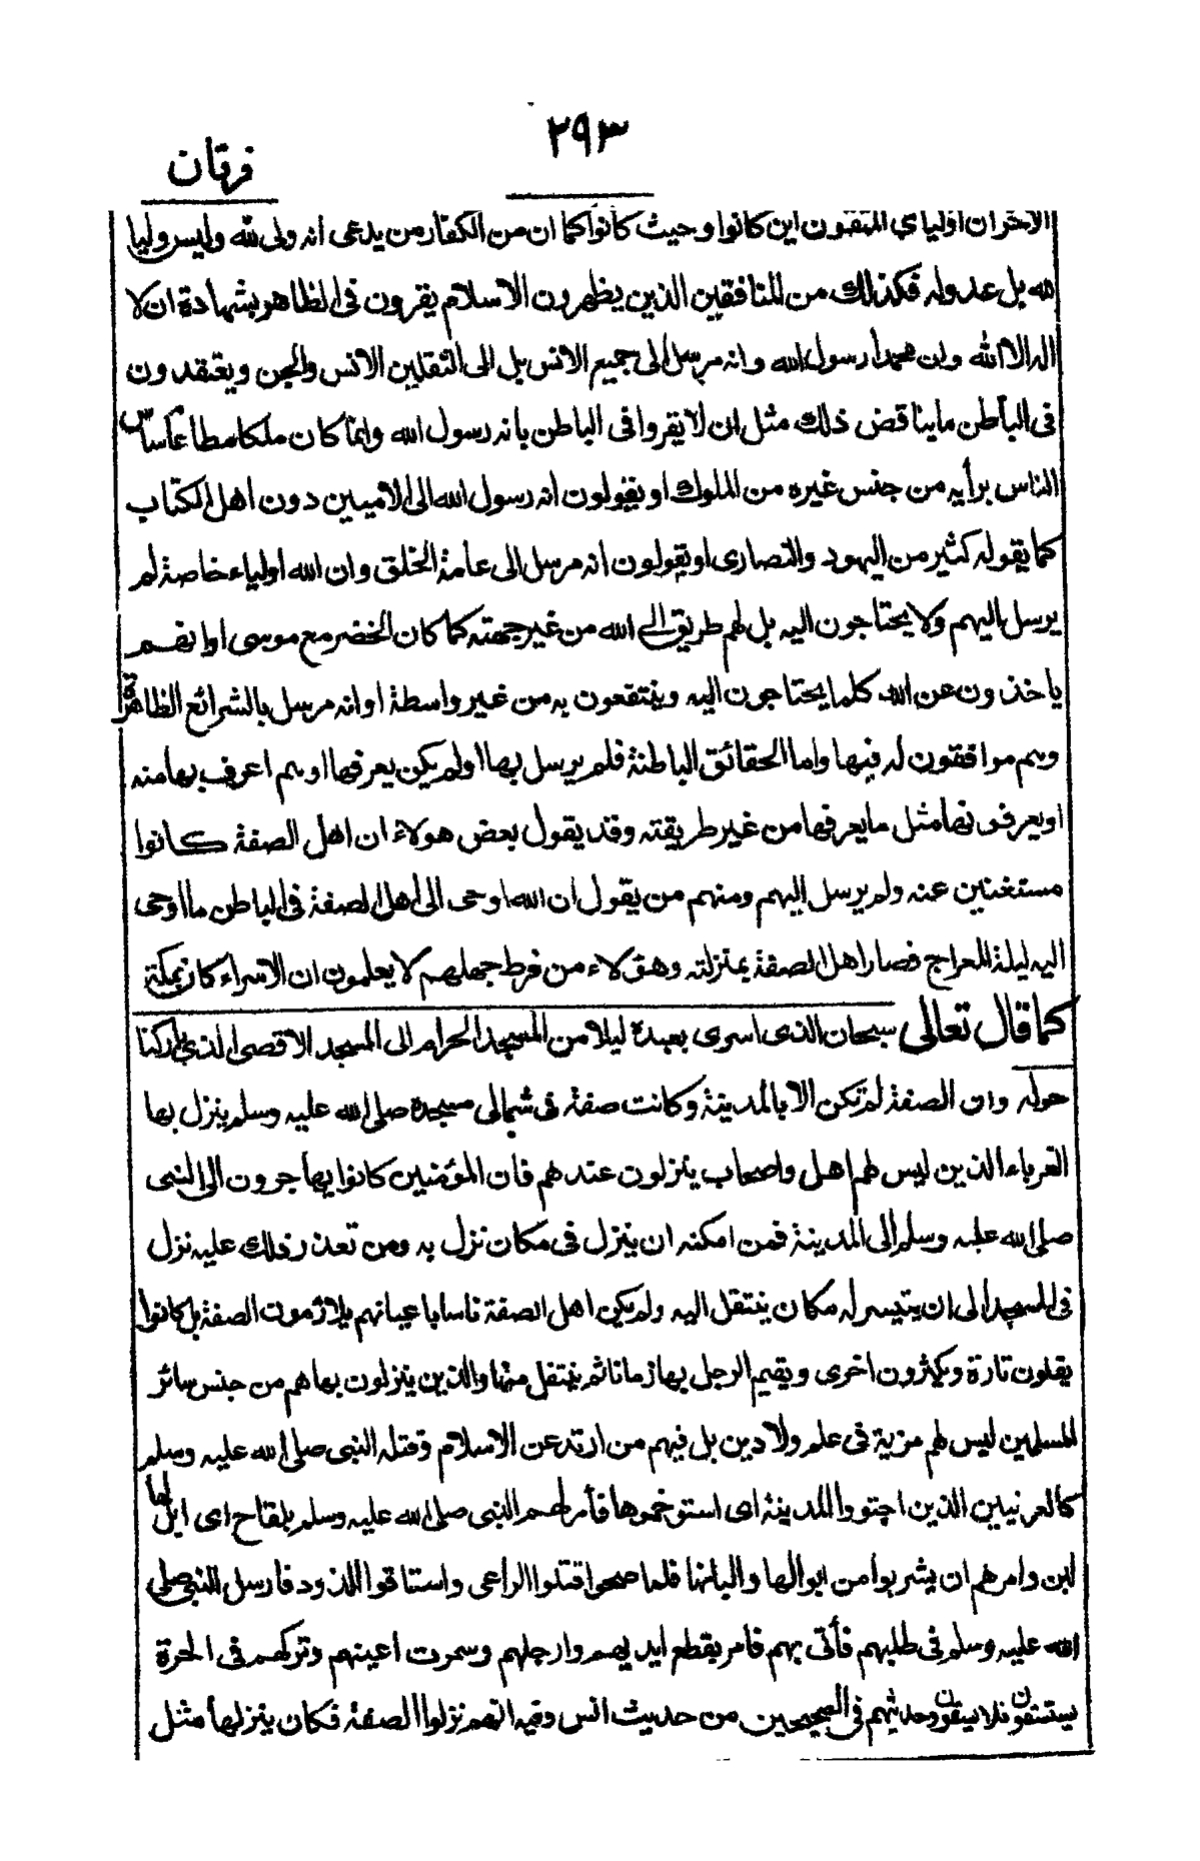 ٢٩٣
فرقان
الاخران اوليائي المتقون اين كانوا وحيث كانوا كما ان من الكفار من يدعى انه ولى لله وليس وليا
لله بل عدو له فكذلك من المنافقين الذين يظهرون الاسلام يقرون فى الظاهر بشهادة ان لا
اله الا الله وان محمدا رسول الله وانه مرسل الى جميع الانس بل الى الثقلين الانس والجن ويعتقدون
فى الباطن ما يناقض ذلك مثل ان لا يقروا فى الباطن بانه رسول الله وانما كان ملكا مطاعا ساس
الناس برأيه من جنس غيره من الملوك او يقولون انه رسول الله الى الاميين دون اهل الكتاب
كما يقوله كثير من اليهود والنصارى او يقولون انه مرسل الى عامة الخلق وان الله اولياء خاصة لم
يرسل اليهم ولا يحتاجون اليه بل لهم طريق الى الله من غير جهته كما كان الخضر مع موسى او انهم
ياخذون عن الله كلما يحتاجون اليه وينتفعون به من غير واسطة او انه مرسل بالشرائع الظاهرة
وهم موافقون له فيها واما الحقائق الباطنة فلم يرسل بها او لم يكن يعرفها او هم اعرف بها منه
او يعرفونها مثل ما يعرفها من غير طريقته وقد يقول بعض هولاء ان اهل الصفة كانوا
مستغنين عنه ولم يرسل اليهم ومنهم من يقول ان الله اوحى الى اهل الصفة فى الباطن ما اوحى
اليه ليلة المعراج فصار اهل الصفة بمنزلته وهؤلاء من فرط جهلهم لا يعلمون ان الاسراء كان بمكة
كما قال تعالى سبحان الذى اسرى بعبده ليلا من المسجد الحرام الى المسجد الاقصى الذي باركنا
حوله وان الصفة لم تكن الا بالمدينة وكانت صفة فى شمالى مسجده صلى الله عليه وسلم ينزل بها
الغرباء الذين ليس لهم اهل واصحاب ينزلون عندهم فان المؤمنين كانوا يهاجرون الى النبى
صلى الله عليه وسلم الى المدينة فمن امكنه ان ينزل فى مكان نزل به ومن تعذر ذلك عليه نزل
فى المسجد الى ان يتيسر له مكان ينتقل اليه ولم يكن اهل الصفة ناسا باعيانهم يلازمون الصفة بل كانوا
يقلون تارة ويكثرون اخرى ويقيم الرجل بها زمانا ثم ينتقل منها والذين ينزلون بها هم من جنس سائر
المسلمين ليس لهم مزية فى علم ولا دين بل فيهم من ارتد عن الاسلام وقتله النبى صلى الله عليه وسلم
كالعرنيين الذين اجتووا المدينة اى استوخموها فأمر لهم النبى صلى الله عليه وسلم بلقاح اى ابل لها
لبن وامرهم ان يشربوا من ابوالها والبانها فلما صحوا قتلوا الراعى واستاقوا الذود فارسل النبى صلى
الله عليه وسلم فى طلبهم فأتى بهم فامر بقطع ايديهم وارجلهم وسمرت اعينهم وتركهم فى الحرة
يستسقون فلا يسقون وحديثهم فى الصحيحين من حديث انس وفيه انهم نزلوا الصفة فكان ينزلها مثل